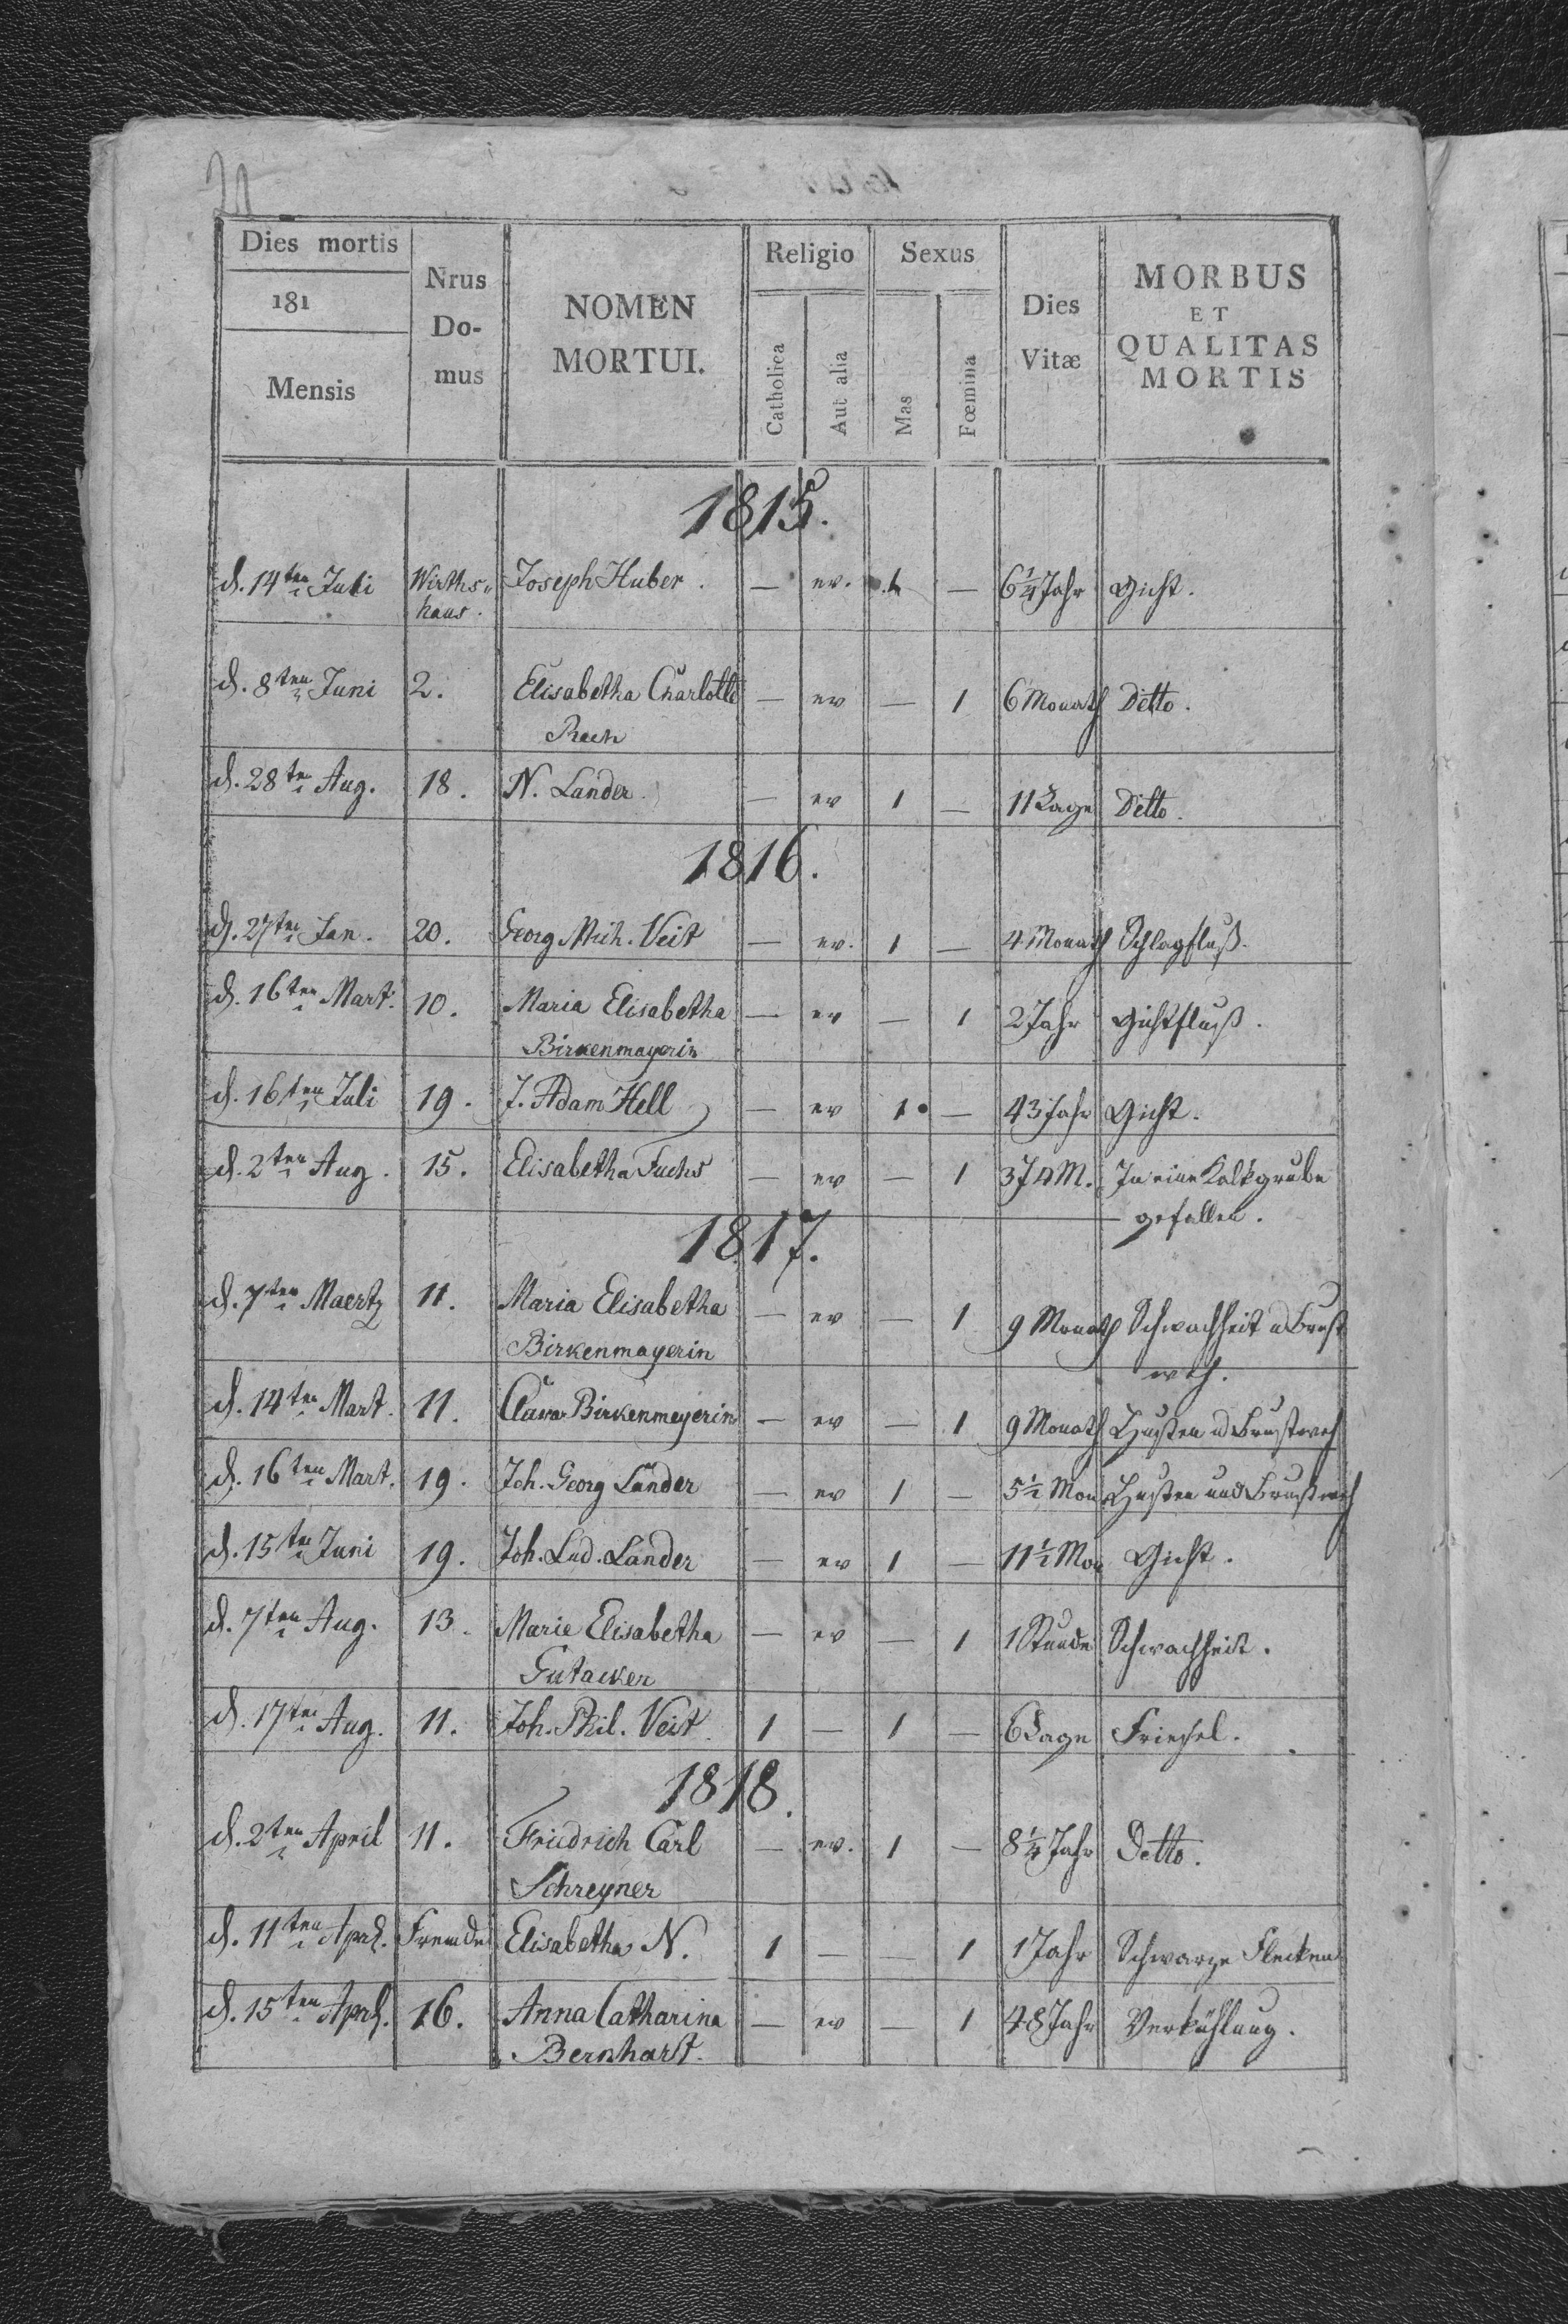 Dies mortis
181
Mensis
Nrus
Do-
mus
NOMEN
MORTUI.
Religio
Catholica
Aut alia
Sexus
Mas
Fœmina
Dies
Vitæ
MORBUS
ET
QUALITAS
MORTIS
1815.
d. 14ten Juli Wirths„ Joseph Huber. — ev. 1 — 6¼ Jahr Gicht.
haus.
d. 8ten Juni 2. Elisabetha Charlotte — ev — 1 6 Monath Ditto.
d. 28ten Aug. 18. N. Lander. — ev 1 — 11 Tage Ditto.
1816.
d. 27ten Jan. 20. Georg Mich. Veit — ev. 1 — 4 Monath Schlagfluß.
d. 16ten Mart. 10. Maria Elisabetha — ev — 1 2 Jahr Gichtfluß.
Birkenmayerin
d. 16ten Juli 19. J. Adam Hell — ev 1 — 43 Jahr Gicht.
d. 2ten Aug. 15. Elisabetha Fuchs — ev — 1 3 J 4 M. In eine Kalkgrube
gefallen.
1817.
d. 7ten Maertz 11. Maria Elisabetha — ev — 1 9 Monath Schwachheit u Brust
Birkenmayerin weh.
d. 14ten Mart. 11. Clara Birkenmeyerin — ev — 1 9 Monath Husten u Brustweh
d. 16ten Mart. 19. Joh. Georg Länder — ev 1 — 5½ Mon Husten und Brustweh
d. 15ten Juni 19. Joh. Lud. Länder — ev 1 — 11½ Mon Gicht.
d. 7ten Aug. 13. Marie Elisabetha — ev — 1 1 Stunde Schwachheit.
Gutacker
d. 17ten Aug. 11. Joh. Phil. Veit. 1 — 1 — 6 Tage Friesel.
1818.
d. 2ten April 11. Friedrich Carl — ev. 1 — 8¼ Jahr Detto.
Schreyner
d. 11ten Aprl. Fremde Elisabetha N. 1 — — 1 1 Jahr Schwarze Flecken
d. 15ten Aprl. 16. Anna Catharina — ev — 1 48 Jahr Verkühlung.
Bernhart.